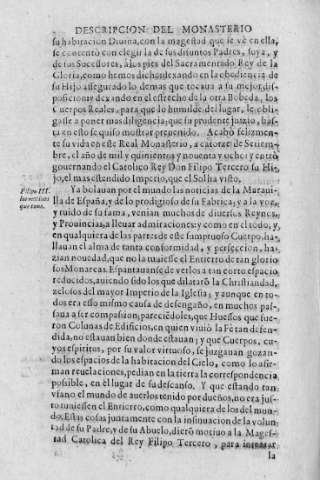 DESCRIPCION DEL MONASTERIO
su habitacion Divina, con la magestad que se vè en ella,
se contentò con elegir la de sus disuntos Padres, suya, y
de sus Sucessores, à los pies del Sacramentado Rey de la
Gloria, como hemos dicho; dexando en la obediencia de
su Hijo assegurado lo demas que tocaua a su mejor dis-
posicion; y dexando en el estrecho de la otra Bobeda, los
Cuerpos Reales, para que lo humilde del lugar, le obli-
gasse a poner mas diligencia; que su prudente juizio, has-
ta en esto se quiso mostrar preuenido. Acabò felizmen-
te su vida en este Real Monasterio, a catorze de Setiem-
bre, el año de mil y quinientos y nouenta y ocho; y entrò
governando el Catolico Rey Don Filipo Tercero su Hi-
jo, el mas estendido Imperio, que el Sol ha visto.
Filipo III.
las noticias
que tuuo.
Ya bolauan por el mundo las noticias de la Maraui-
lla de España, y de lo prodigioso de su Fabrica; y a la voz,
y ruido de su fama, venian muchos de diuersos Reynos,
y Prouincias, a lleuar admiraciones; y como en el todo, y
en qualquiera de las partes de este sumptuoso Cuerpo, ha-
llauan el alma de tanta conformidad, y perfeccion, ha-
zian nouedad, que no la tuuiesse el Entierro de tan glorio
sos Monarcas. Espantauanse de verlos a tan corto espacio
reducidos, auiendo sido los que dilatarõ la Christiandad,
zelosos del mayor Imperio de la Iglesia; y aunque en to-
dos era esto mismo causa de desengaño, en muchos pas-
saua a ser compassion, pareciendoles, que Huessos que fue-
ron Colunas de Edificios, en quien viuiò la Fè tan defen-
dida, no estauan bien donde estauan; y que Cuerpos, cu-
yos espiritus, por su valor virtuoso, se juzgauan gozan-
do los espacios de la habitacion del Cielo, como lo afir-
man reuelaciones, pedian en la tierra la correspondencia
possible, en el lugar de su descanso. Y que estando tan
vfano el mundo de auerlos tenido por dueños, no era jus-
to tuuiessen el Entierro, como qualquiera de los del mun-
do. Estas cosas juntamente con la insinuacion de la volun-
tad de su Padre, y de su Abuelo, dierõ motiuo a la Mages-
tad Catolica del Rey Filipo Tercero, para intentar
la